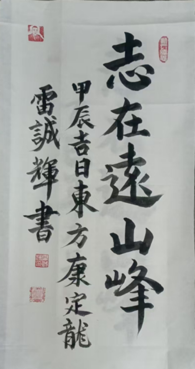 志在遠山峰
甲辰吉日東方康定龍
雷誠輝書